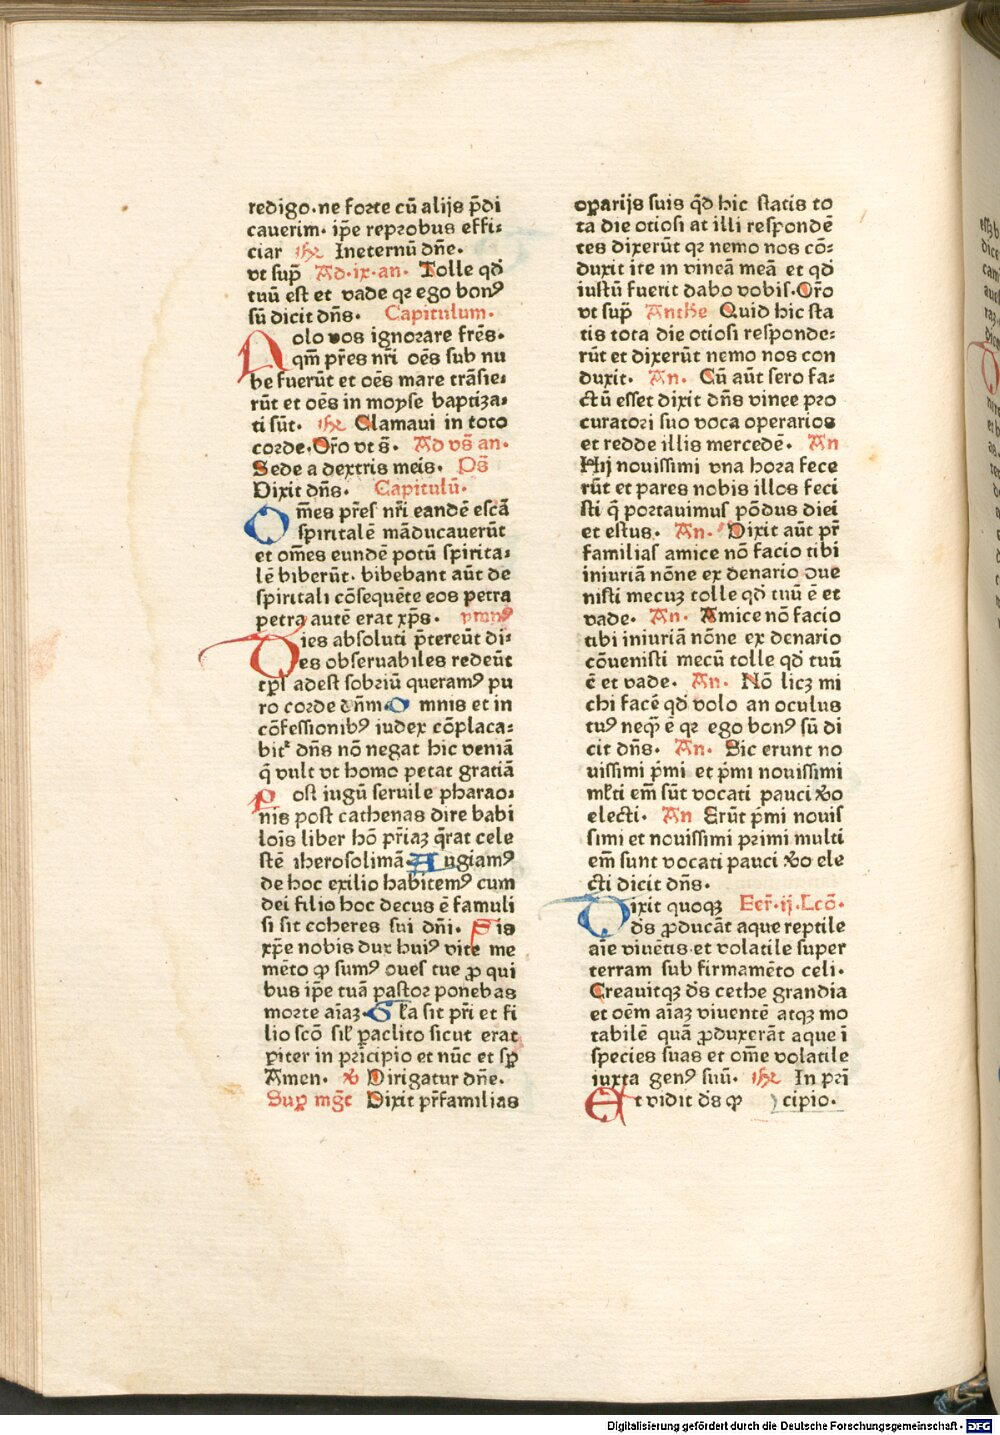 redigo.ne forte cū alijs p̄di
cauerim. ip̄e reprobus effi⸗
ciar ꝶ Ineternū dn̄e.
vt sup̄ Ad.ix.an. Tolle qd̓
tuū est et vade qꝛ ego bonꝰ
sū dicit dn̄s. Capitulum.
Nolo vos ignorare frēs.
qm̄ pr̄es nr̄i oēs sub nu
be fuerūt et oēs mare trāsie⸗
rūt et oēs in moyse baptiza⸗
ti sūt. ꝶ Clamaui in toto
corde. Or̄o vt s̄. Ad vs̄ an.
Sede a dextris meis. Ps̄
Dixit dn̄s. Capitulū.
Om̄es pr̄es nr̄i eandē escā
spiritalē māducauerūt
et om̄es eundē potū spirita⸗
lē biberūt. bibebant aūt de
spiritali cōsequēte eos petra
petra autē erat xp̄s. ymnꝰ
Dies absoluti p̄tereūt di⸗
es obseruabiles redeūt
tp̄ł adest sobriū queramꝰ pu
ro corde dn̄m. Omnis et in
cōfessionibꝰ iudex cōplaca⸗
bit᷑ dn̄s nō negat hic veniā
q̄ vult vt homo petat gratiā
Post iugū seruile pharao⸗
nis post cathenas dire babi
lois̄ liber hō pr̄iaꝫ q̄rat cele
stē iherosolimā. Augiamꝰ
de hoc exilio habitemꝰ cum
dei filio hoc decus ē famuli
si sit coheres sui dn̄i. Sis
xp̄e nobis dux huiꝰ vite me
mēto ꝙ sumꝰ oues tue ꝓ qui
bus ip̄e tuā pastor ponebas
morte aīaꝫ. Gl̄a sit pr̄i et fi
lio scō sil̄ ꝑaclito sicut erat
ꝑiter in pr̄icipio et nūc et sꝑ
Amen. ℣ Dirigatur dn̄e.
Suꝑ mḡt Dixit pr̄familias
oꝑarijs suis qd̓ hic statis to
ta die otiosi at illi respondē
tes dixerūt qꝛ nemo nos cō⸗
duxit ite in vineā meā et qd̓
iustū fuerit dabo vobis. Or̄o
vt sup̄ Anthe Quid hic sta
tis tota die otiosi responde⸗
rūt et dixerūt nemo nos con
duxit. An. Cū aūt sero fa⸗
ctū esset dixit dn̄s vinee pro
curatori suo voca operarios
et redde illis mercedē. An
Hij nouissimi vna hora fece
rūt et pares nobis illos feci
sti q̄ portauimus pōdus diei
et estus. An. Dixit aūt pr̄
familias amice nō facio tibi
iniuriā nōne ex denario oue
nisti mecuꝫ tolle qd̓ tuū ē et
vade. An. Amice nō facio
tibi iniuriā nōne ex denario
cōuenisti mecū tolle qd̓ tuū
ē et vade. An. Nō licꝫ mi
chi facē qd̓ volo an oculus
tuꝰ neqꝫ ē qꝛ ego bonꝰ sū di
cit dn̄s. An. Sic erunt no
uissimi p̄mi et p̄mi nouissimi
ml̄ti em̄ sūt vocati pauci ꝟo
electi. An Erūt p̄mi nouis
simi et nouissimi primi multi
em̄ sunt vocati pauci ꝟo ele
cti dicit dn̄s.
Dixit quoqꝫ Ecr̄.ij.Lcō.
ds̄ ꝓducāt aque reptile
aīe viuētis et volatile super
terram sub firmamēto celi.
Creauitqꝫ ds̄ cethe grandia
et oēm aīaꝫ viuentē atqꝫ mo
tabilē quā ꝓduxerāt aque ī
species suas et om̄e volatile
iuxta genꝰ suū. ꝶ In pr̄i
Et vidit ds̄ ꝙ cipio.
Digitalisierung gefördert durch die Deutsche Forschungsgemeinschaft - DFG